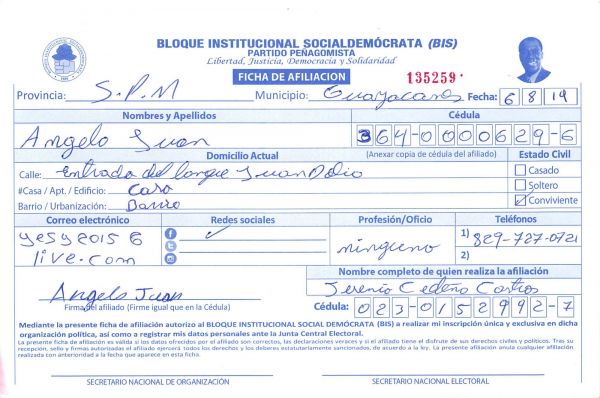 BLOQUE INSTITUCIONAL SOCIALDEMÓCRATA (BIS)
PARTIDO PEÑAGOMISTA
Libertad, Justicia, Democracia y Solidaridad
FICHA DE AFILIACION
135259
Provincia: S.P.M Municipio: Guayacanes Fecha: 6 8 19
Nombres y Apellidos Cédula
Angelo Juan 364-0000629-6
Domicilio Actual (Anexar copia de cédula del afiliado) Estado Civil
Calle: Entrada del Juan
Casado
#Casa / Apt. / Edificio: Casa
Soltero
Barrio / Urbanización: Barrio
Conviviente
Correo electrónico Redes sociales Profesión/Oficio Teléfonos
yesy2015@
live.com
ninguno
1) 829-727-0721
2)
Nombre completo de quien realiza la afiliación
Cedeño Castros
Angelo Juan
Firma del afiliado (Firme igual que en la Cédula)
Cédula: 023-0152992-7
Mediante la presente ficha de afiliación autorizo al BLOQUE INSTITUCIONAL SOCIAL DEMÓCRATA (BIS) a realizar mi inscripción única y exclusiva en dicha
organización política, así como a registrar mis datos personales ante la Junta Central Electoral.
La presente ficha de afiliación es válida si los datos ofrecidos por el afiliado son correctos, las declaraciones veraces y si el afiliado tiene el disfrute de sus derechos civiles y políticos. Tras su
recepción, sello y firmas autorizadas el afiliado ejercerá todos los derechos y los deberes estatutariamente sancionados, de acuerdo a la ley. La presente afiliación anula cualquier afiliación
realizada con anterioridad a la fecha que aparece en esta ficha.
SECRETARIO NACIONAL DE ORGANIZACIÓN SECRETARIO NACIONAL ELECTORAL